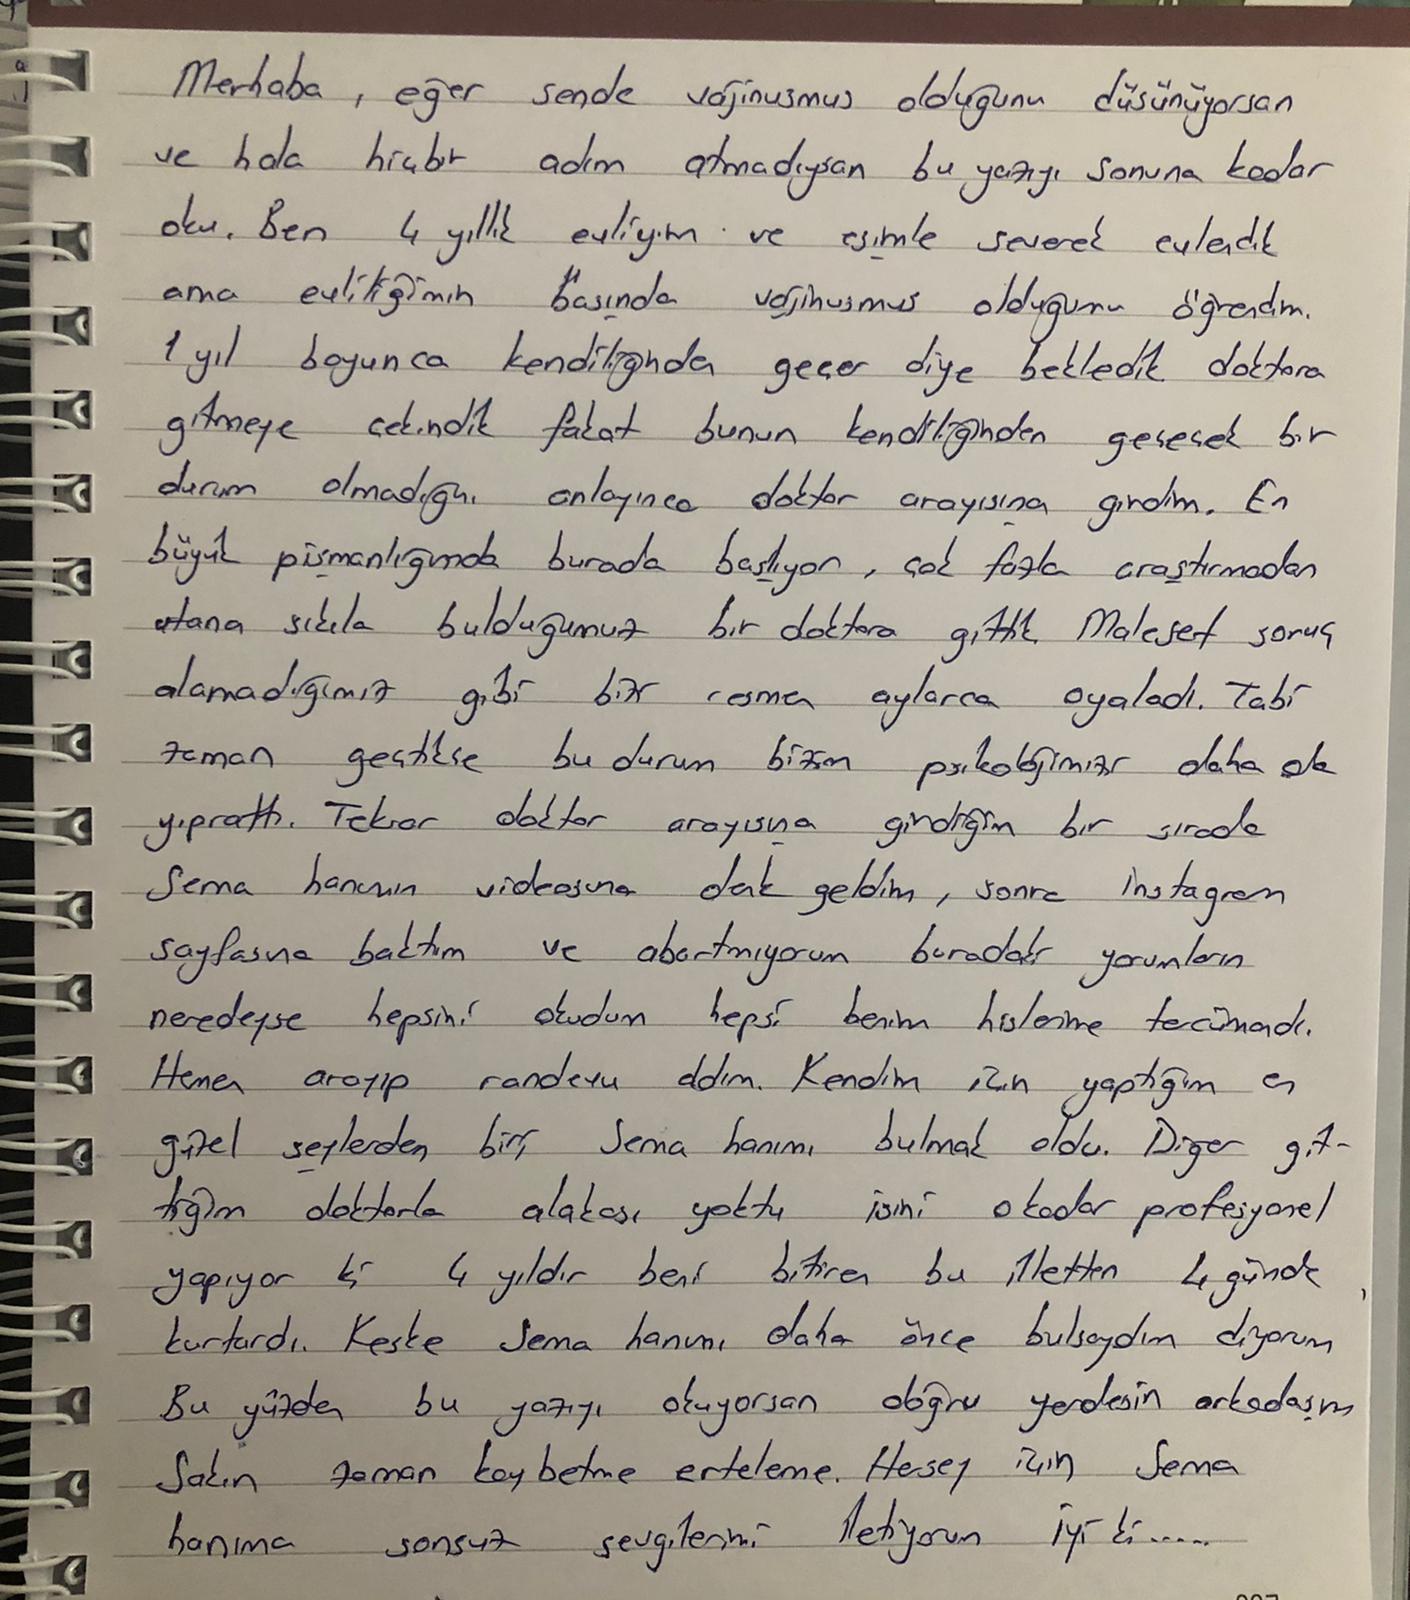 Merhaba, eğer sende vajinusmus olduğunu düşünüyorsan
ve hala hiçbir adım atmadıysan bu yazıyı sonuna kadar
oku. Ben 4 yıllık evliyim ve eşimle severek evlendik
ama evliliğimin başında vajinusmus olduğunu öğrendim.
1 yıl boyunca kendiliğinden geçer diye bekledik doktora
gitmeye çekindik fakat bunun kendiliğinden geçecek bir
durum olmadığını anlayınca doktor arayışına girdim. En
büyük pişmanlığımda burada başlıyor, çok fazla araştırmadan
utana sıkıla bulduğumuz bir doktora gittik. Malesef sonuç
alamadığımız gibi bizi resmen aylarca oyaladı. Tabi
zaman geçtikse bu durum bizim psikolojimizi daha da
yıprattı. Tekrar doktor arayışına girdiğim bir sırada
Sema hanımın videosuna denk geldim, sonra instagram
sayfasına baktım ve abartmıyorum buradaki yorumların
neredeyse hepsini okudum hepsi benim hislerime tercümandı.
Hemen arayıp randevu aldım. Kendim için yaptığım en
güzel şeylerden biri Sema hanımı bulmak oldu. Diğer git-
tiğim doktorla alakası yoktu işini okadar profesyonel
yapıyor ki 4 yıldır beni bitiren bu illetten 4 günde
kurtardı. Keşke Sema hanımı daha önce bulsaydım diyorum
Bu yüzden bu yazıyı okuyorsan doğru yerdesin arkadaşım
Sakın zaman kaybetme erteleme. Herşey için Sema
hanıma sonsuz sevgilerimi iletiyorum iyi ki.....